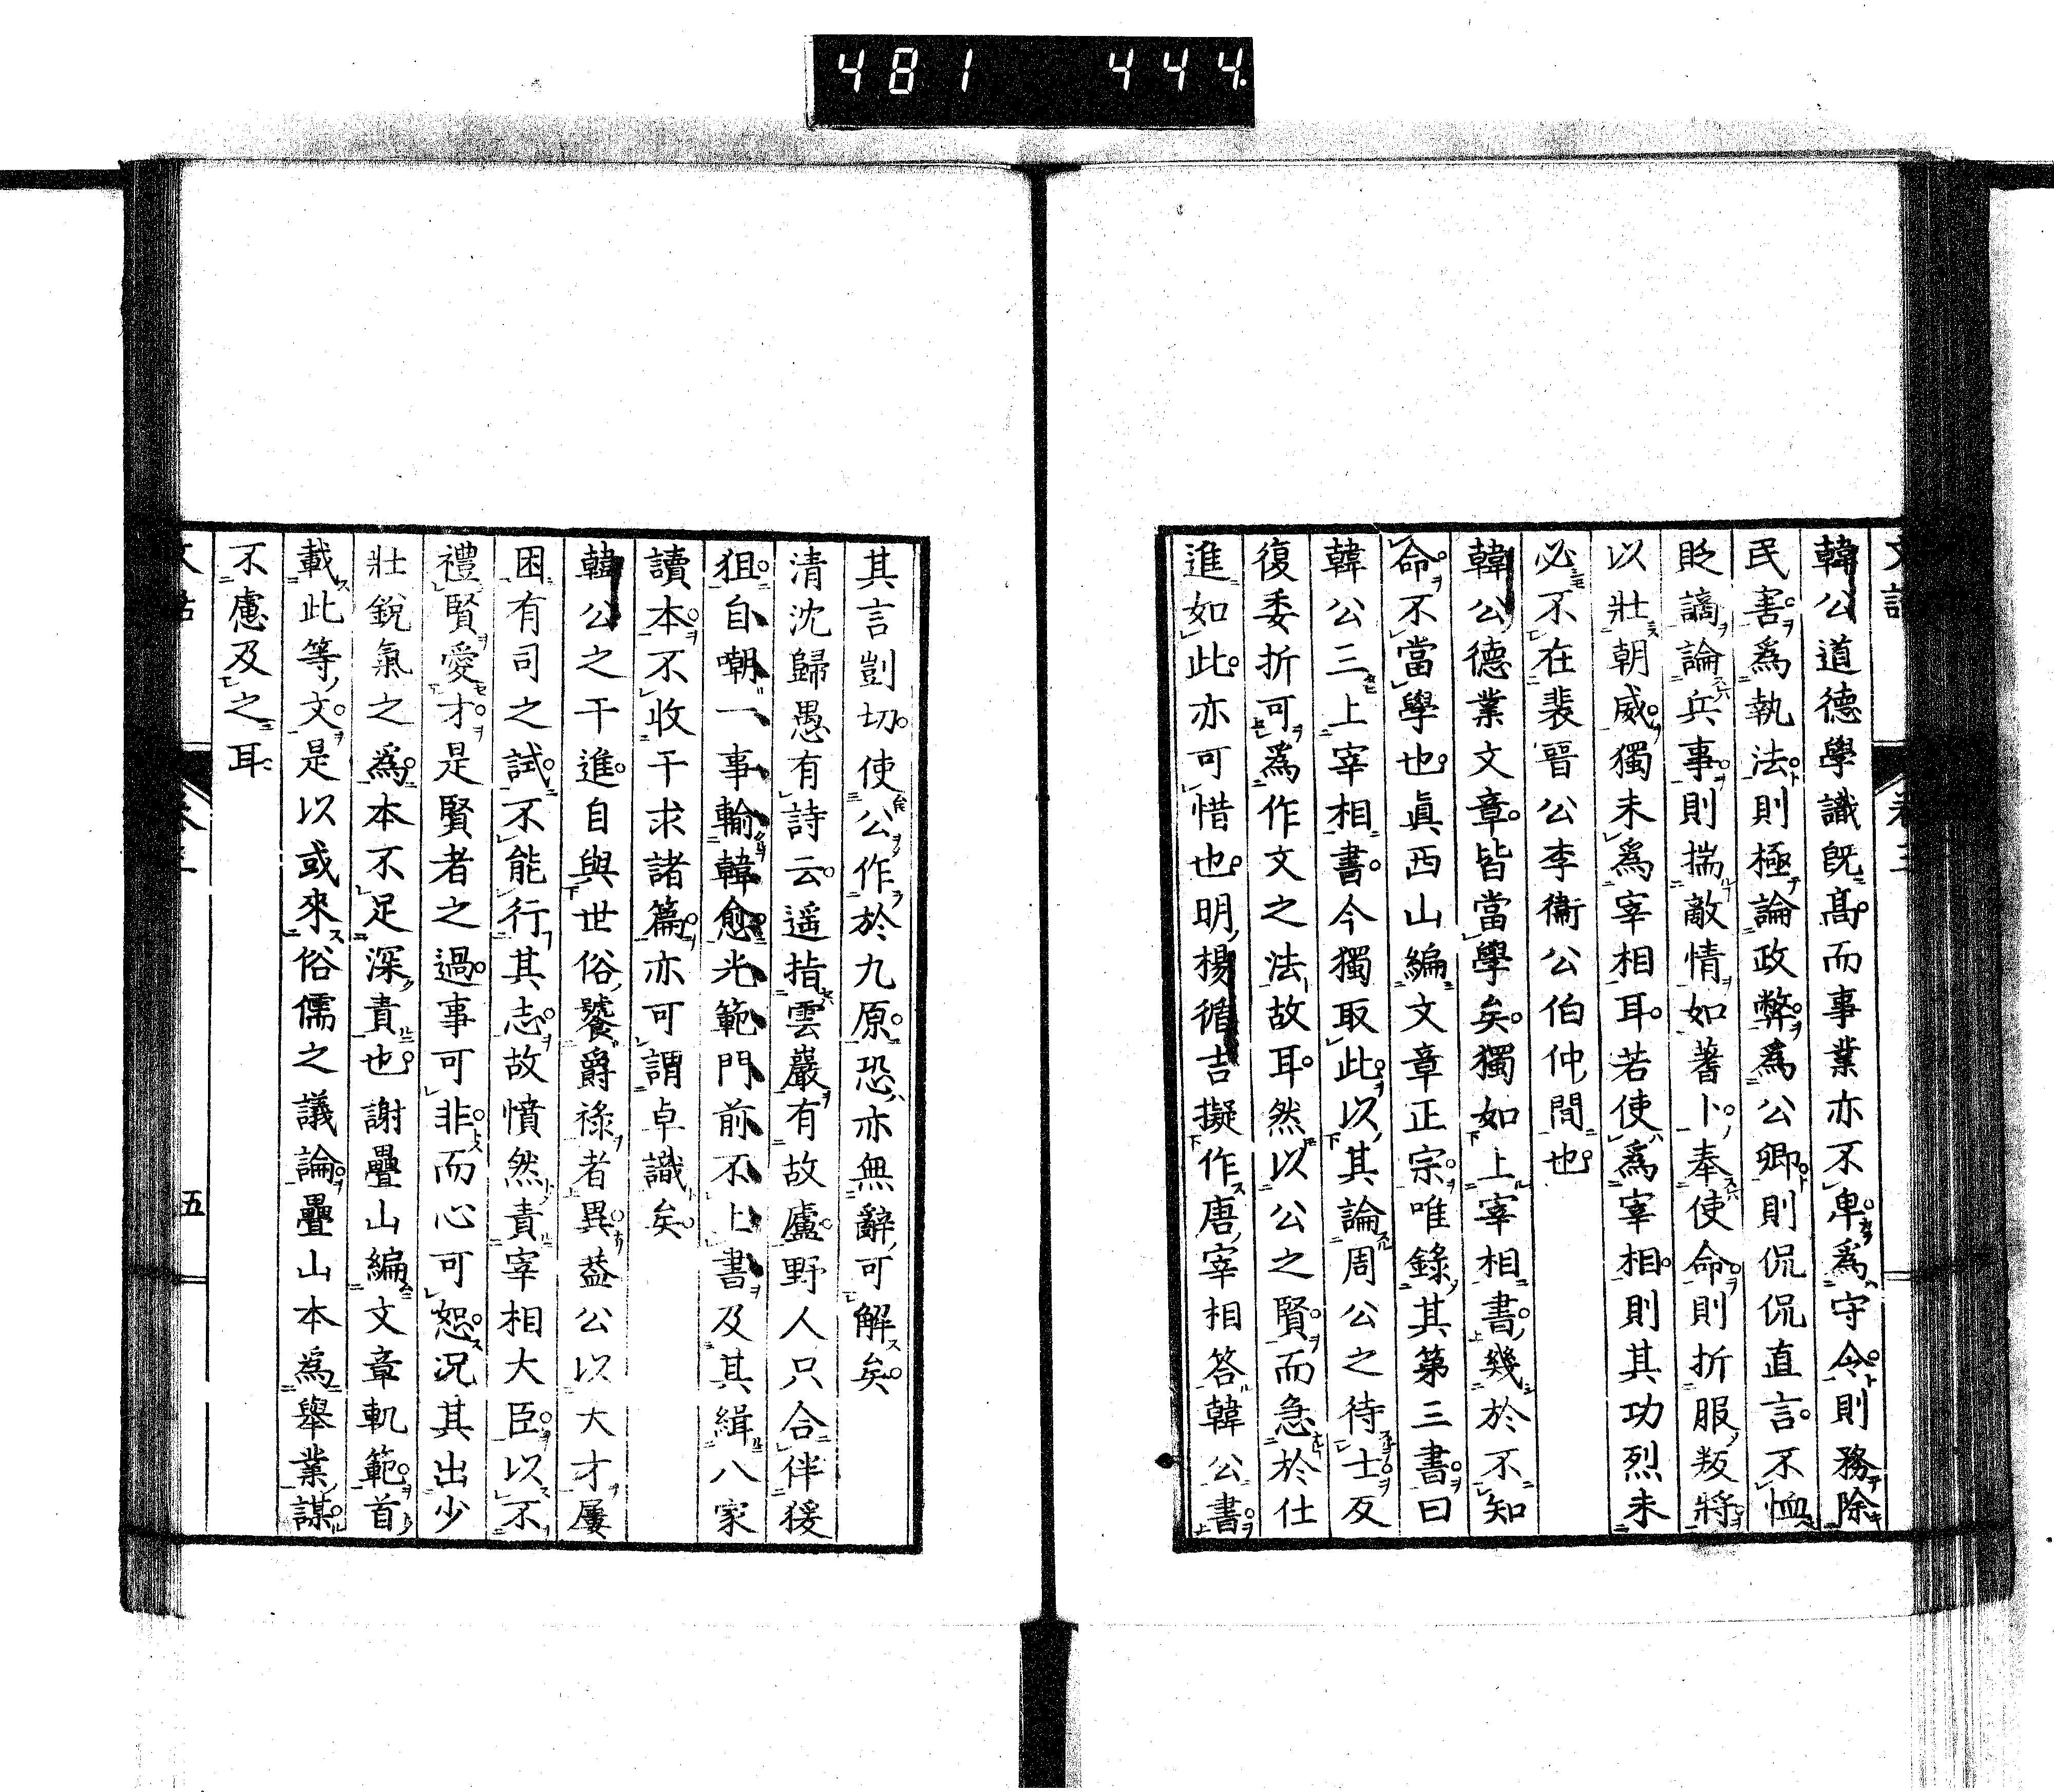 481 444
韓公道德學識旣高而事業亦不卑爲守令則務除
民害爲執法則極論政弊爲公卿則侃侃直言不恤
貶謫論兵事則揣敵情如蓍卜奉使命則折服叛將
以壯朝威獨未爲宰相耳若使爲宰相則其功烈未
必不在裴晉公李衞公伯仲間也
韓公德業文章皆當學矣獨如上宰相書幾於不知
命不當學也眞西山編文章正宗唯錄其第三書曰
韓公三上宰相書今獨取此以其論周公之待士反
復委折可爲作文之法故耳然以公之賢而急於仕
進如此亦可惜也明楊循吉擬作唐宰相答韓公書
其言剴切使公作於九原恐亦無辭可解矣
清沈歸愚有詩云遥指雲巖有故廬野人只合伴猨
狙自嘲一事輸韓愈光範門前不上書及其緝八家
讀本不收干求諸篇亦可謂卓識矣
韓公之干進自與世俗饕爵祿者異葢公以大才屢
困有司之試不能行其志故憤然責宰相大臣以不
禮賢愛才是賢者之過事可非而心可恕況其出少
壯銳氣之爲本不足深責也謝疊山編文章軌範首
載此等文是以或來俗儒之議論疊山本爲舉業謀
不慮及之耳
五